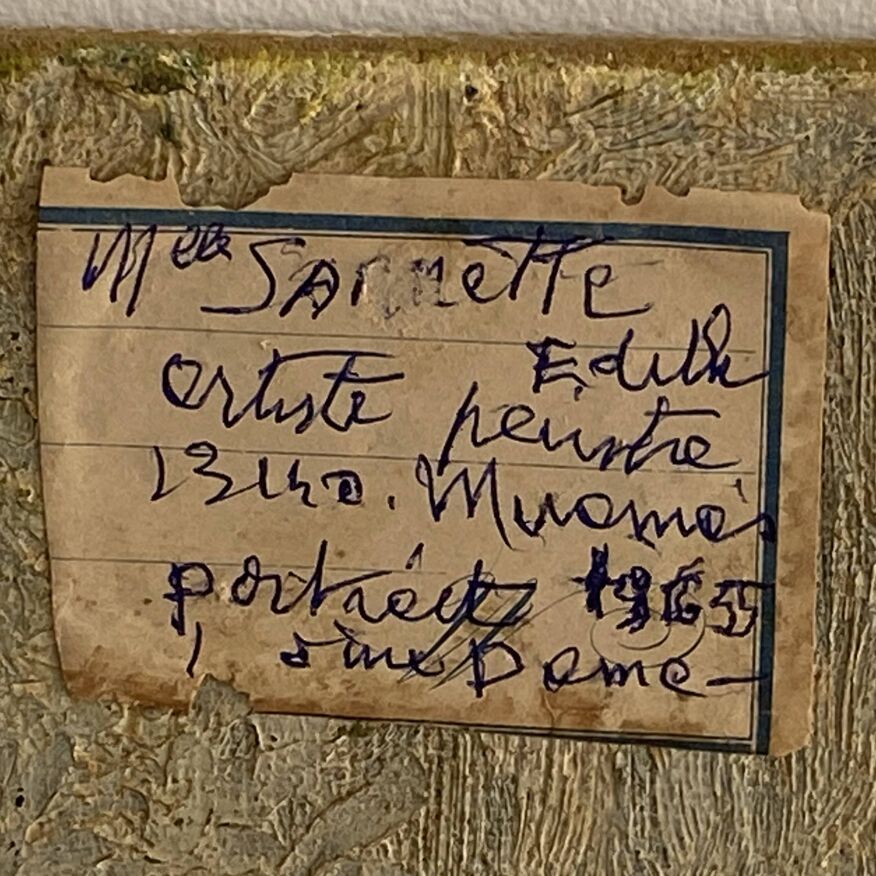 Melle SARNETTE
Edith
artiste peintre
13140. Miramas
portrait 1965
d'une Dame